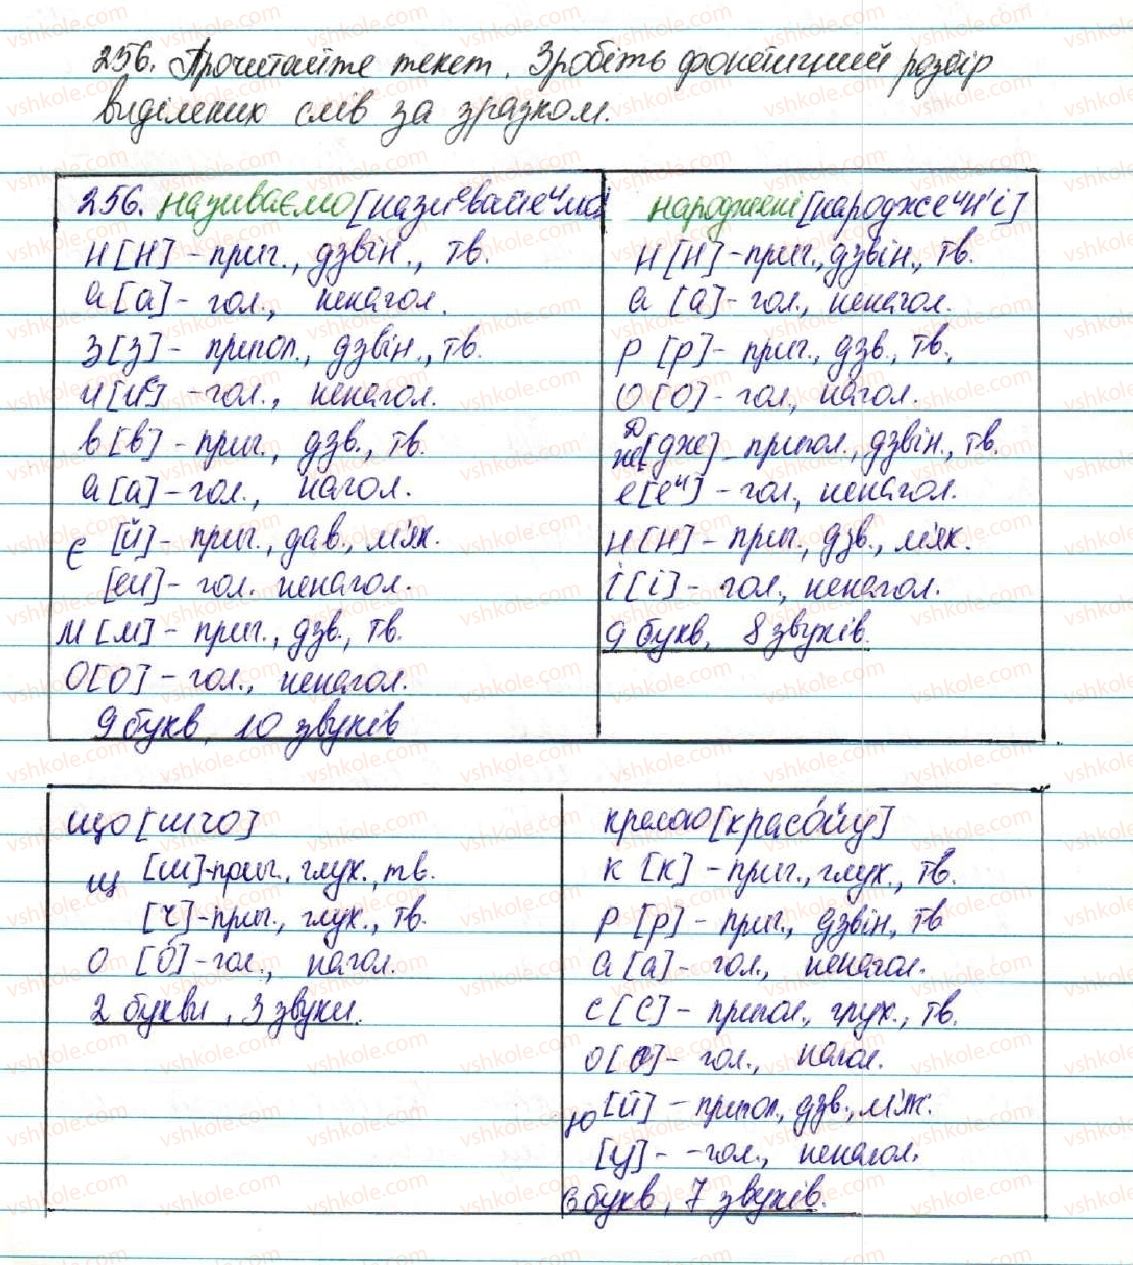 256. Прочитайте текст. Зробіть фонетичний розбір
виділених слів за зразком.
256. називаємо [називайеимо]
н [н] - приг., дзвін., тв.
а [а] - гол., ненагол.
з [з] - припол., дзвін., тв.
и [ие] - гол., ненагол.
в [в] - приг., дзв., тв.
а [а] - гол., нагол.
є [й] - приг., дзв., м'як.
[еи] - гол. ненагол.
м [м] - приг., дзв., тв.
о [о] - гол., ненагол.
9 букв, 10 звуків
народжені [народжеин'і]
н [н] - приг., дзвін., тв.
а [а] - гол., ненагол.
р [р] - приг., дзв., тв.
о [о] - гол., нагол.
дж [дж] - припол., дзвін., тв.
е [еи] - гол., ненагол.
н [н] - приг., дзв., м'як.
і [і] - гол., ненагол.
9 букв, 8 звуків.
що [шчо]
щ [ш] - приг., глух., тв.
[ч] - приг., глух., тв.
о [о] - гол., нагол.
2 букви, 3 звуки.
красою [красо́йу]
к [к] - приг., глух., тв.
р [р] - приг., дзвін., тв
а [а] - гол., ненагол.
с [с] - припол., глух., тв.
о [о] - гол., нагол.
ю [й] - припол, дзв., м'як.
[у] - - гол., ненагол.
6 букв, 7 звуків.